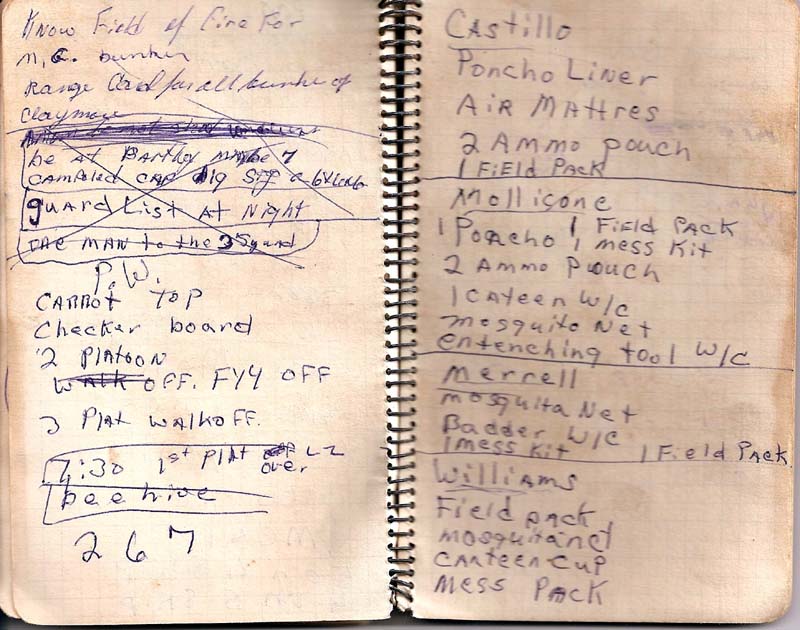 Know Field of Fire For
M.G. bunker
Range Card for all bunke of
Claymore
be at Barthq maybe 7
guard List At Night
one MAN to the 3 Squad
P.W.
CARROT TOP
Checker board
2 PLATOON
walk OFF. FY4 OFF
3 Plat walkoff.
7:30 1st PlAt LZ
over
beehive
267
CAStillo
Poncho Liner
AiR MAttres
2 Ammo pouch
1 FiElD PACk
Mollisone
1 Poncho 1 Field PACk
1 mess Kit
2 Ammo Pouch
1 CAteen W/C
mosquito Net
entenching tool W/C
Merrell
mosquita Net
Badder W/C
1 mess kit 1 Field PAck
Williams
Field pack
mosquita net
CANteen-Cup
Mess PAck